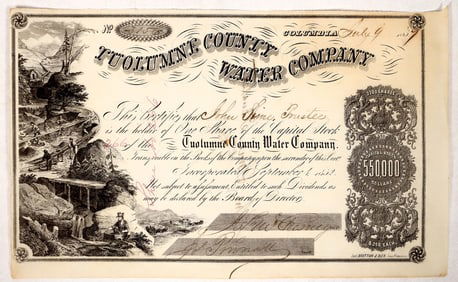 No
COLUMBIA July 9 18
TUOLUMNE COUNTY
WATER COMPANY
This Certifies that John Sime, Trustee
is the holder of One Share of the Capital Stock
of the Tuolumne County Water Company.
Transferable on the Books of the Company upon the surrender of this Cert.
Incorporated September 1
Not subject to assessment, Entitled to such Dividends as
may be declared by the Board of Directors
1100 SHARES
$550000
DOLLARS
$ 500 EACH
BRITTON & REY